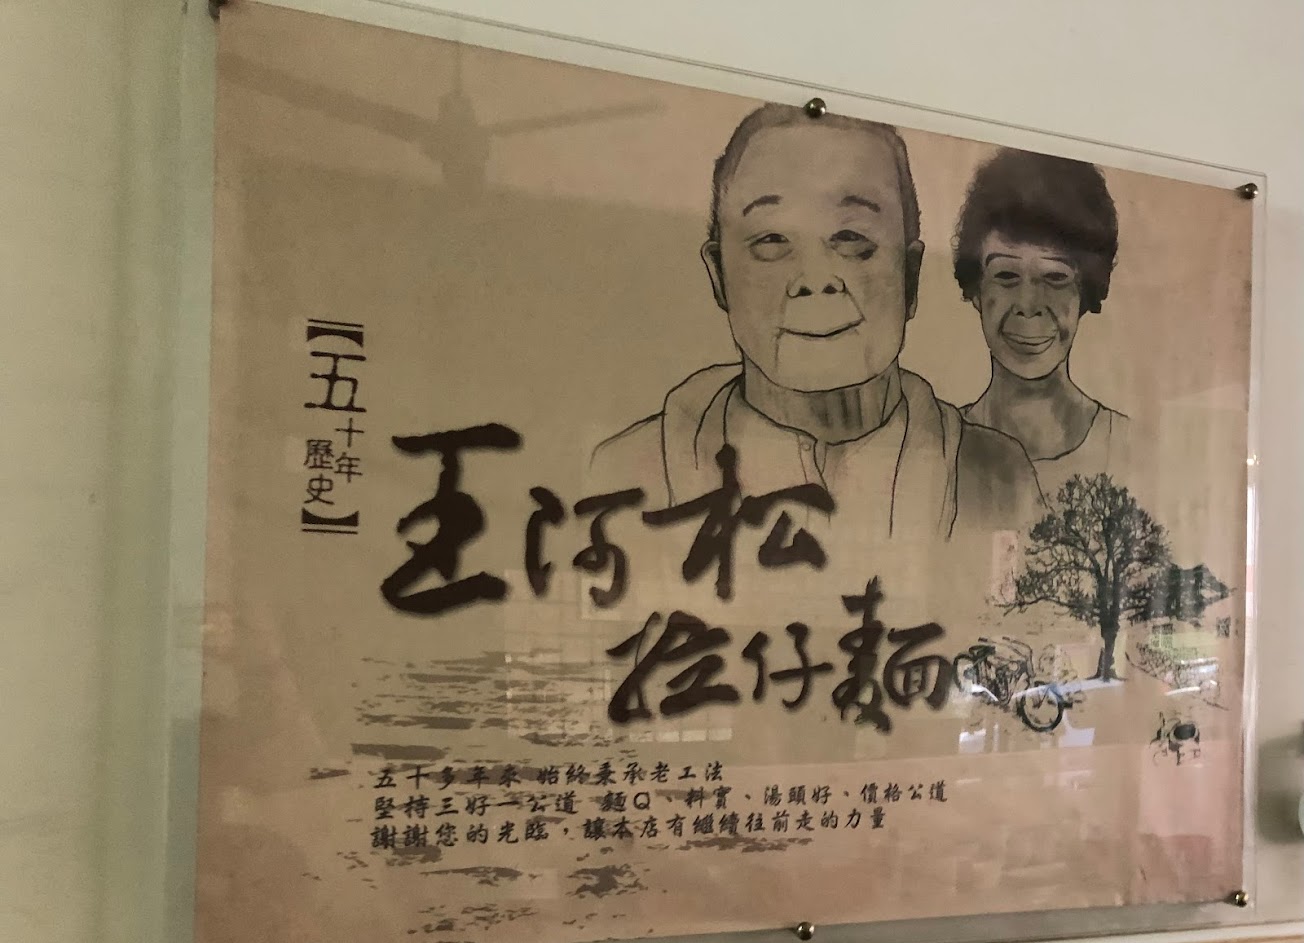 【五十年歷史】
王阿松
拉仔麵
五十多年來 始終秉承老工法
堅持三好一公道 麵Q、料實、湯頭好、價格公道
謝謝您的光臨，讓本店有繼續往前走的力量